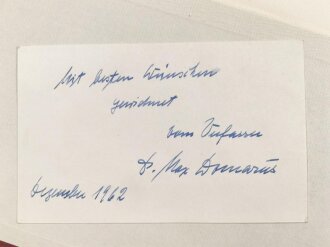 Mit besten Wünschen
gewidmet
vom Verfasser
Dr. Max Domarus
Dezember 1962